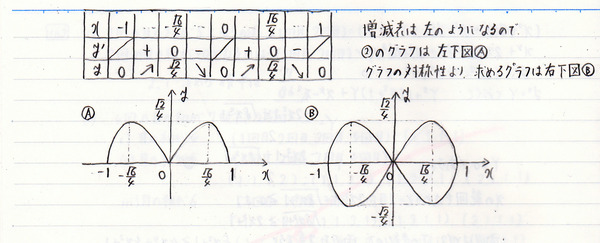 x -1 -√6/4 0 √6/4 1
y' + 0 - + 0 -
y 0 ↗ √2/4 ↘ 0 ↗ √2/4 ↘ 0
増減表は左のようになるので
②のグラフは左下図Ⓐ
グラフの対称性より、求めるグラフは右下図Ⓑ
Ⓐ
y
√2/4
-1 -√6/4 0 √6/4 1 x
Ⓑ
y
√2/4
-1 -√6/4 0 √6/4 1 x
-√2/4